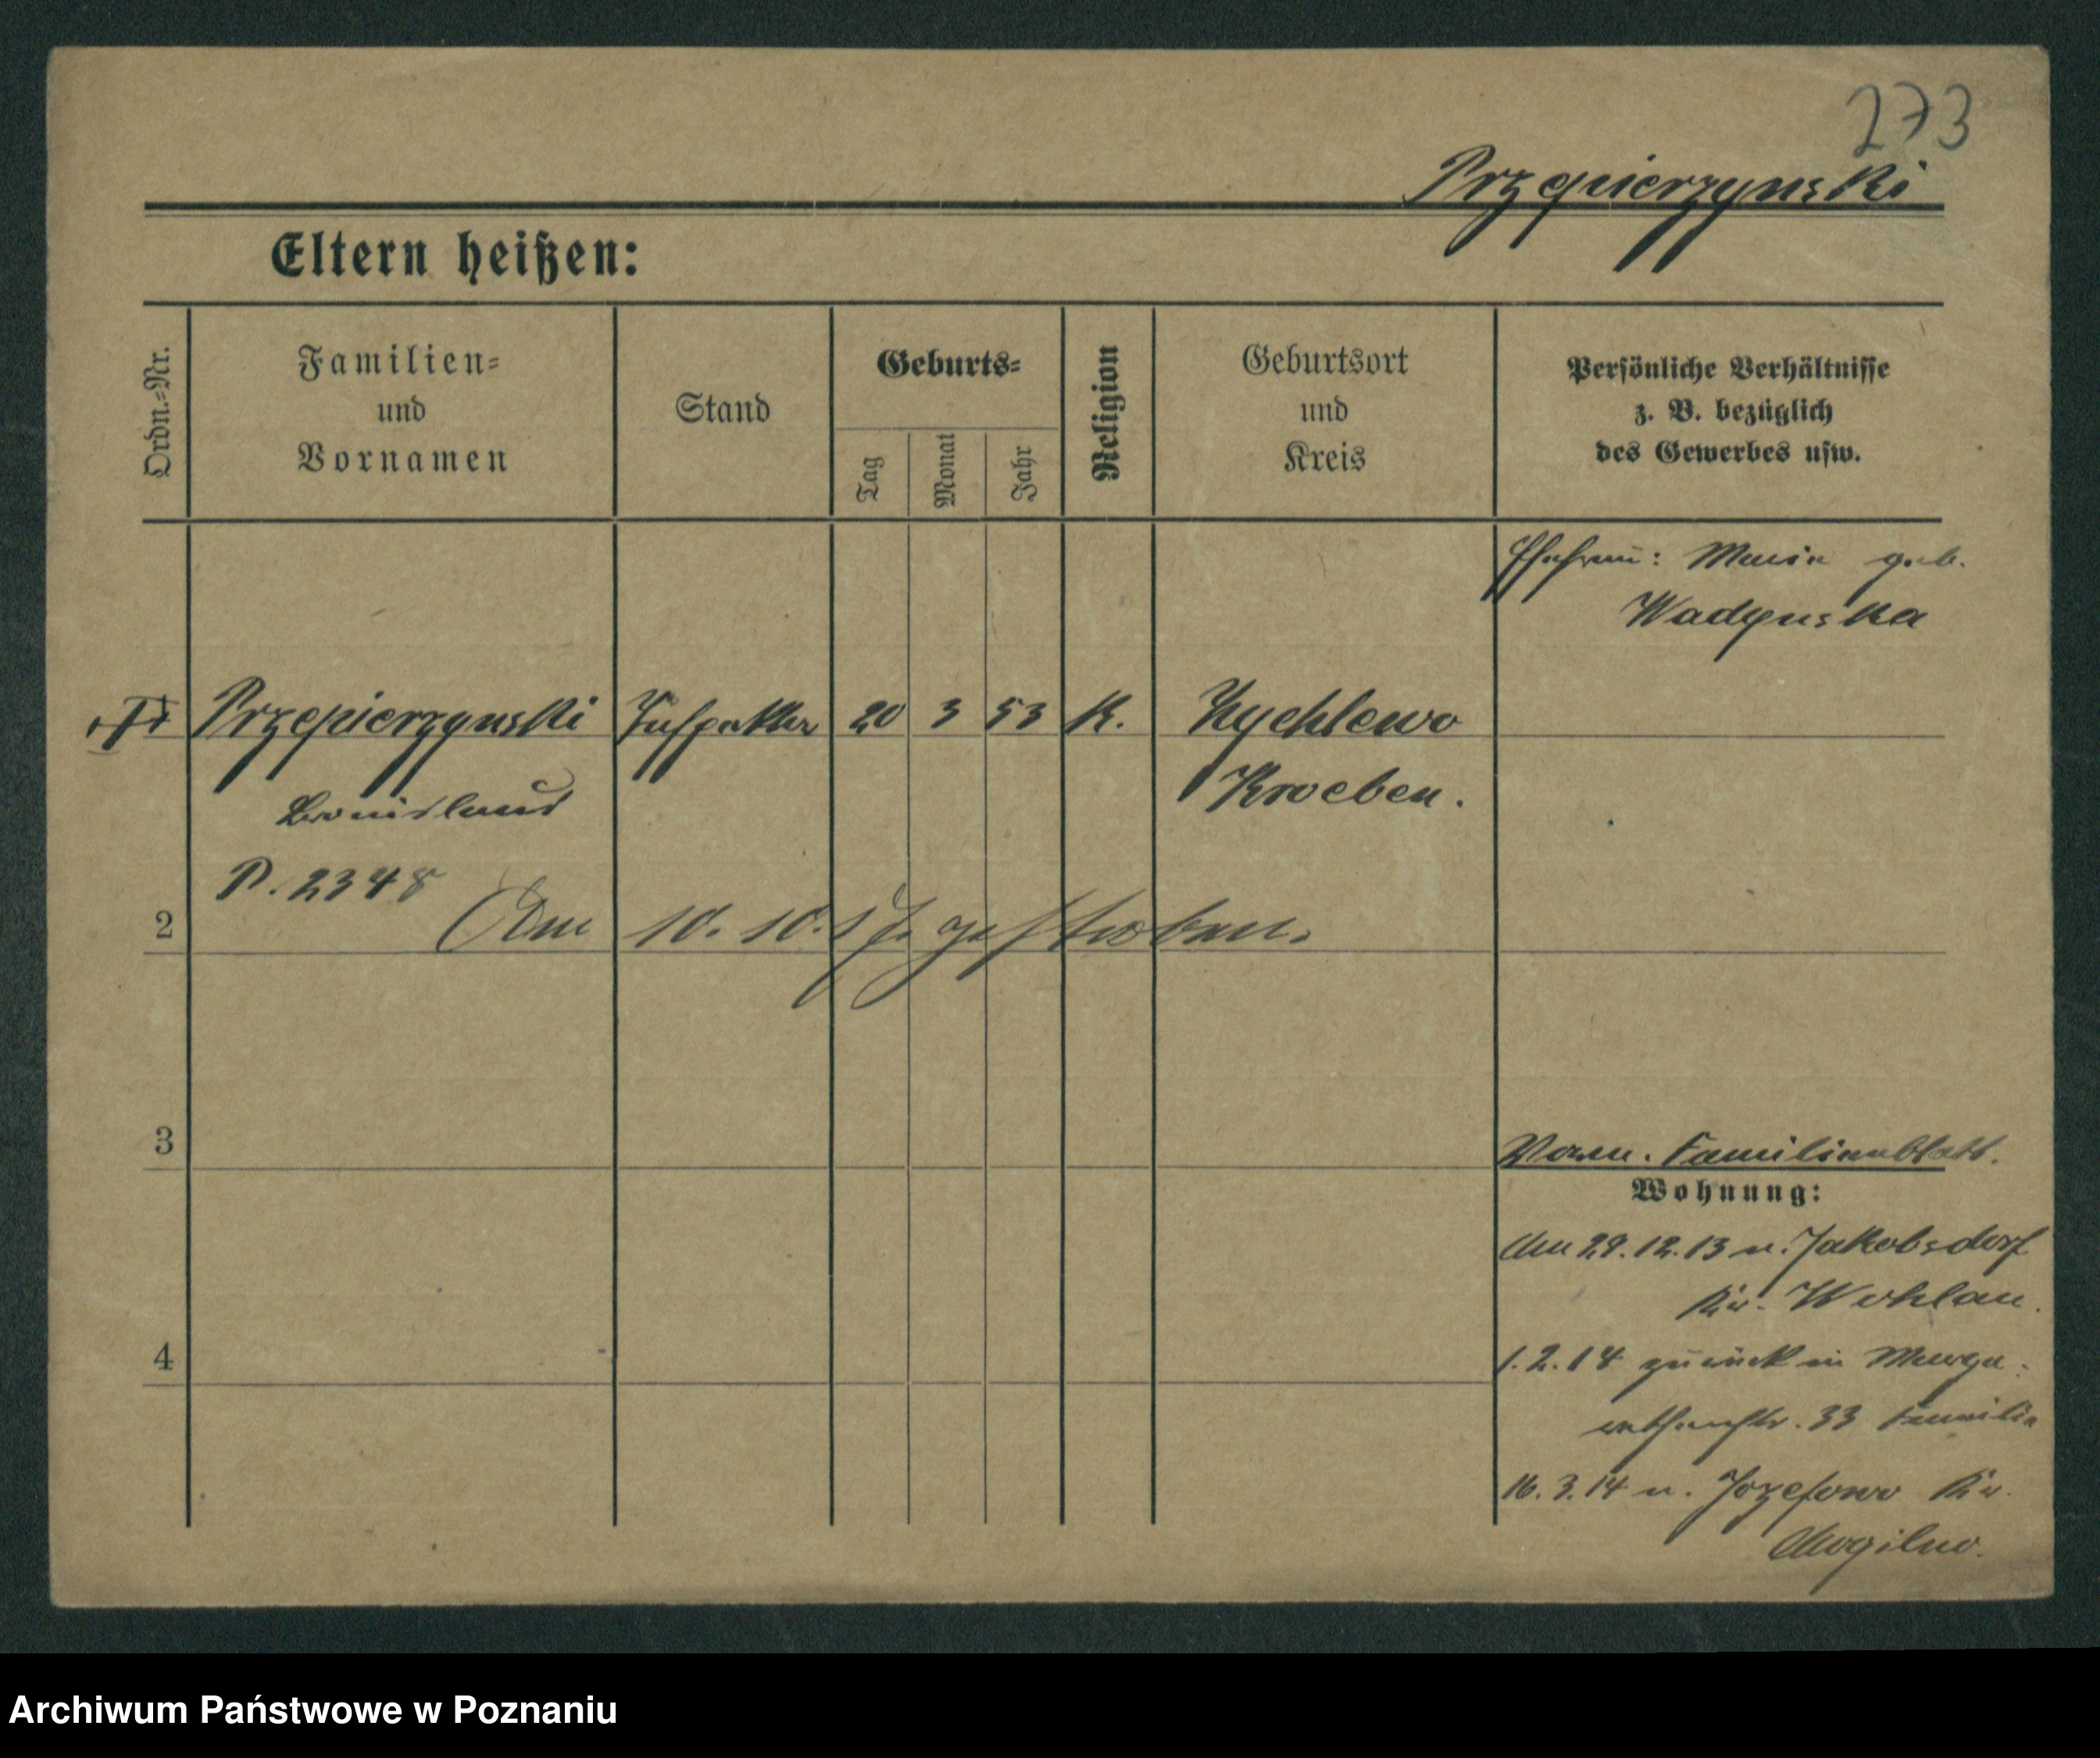 273
Przepierzynski
Eltern heißen:
Ordn.-Nr.
Familien-
und
Vornamen
Stand
Geburts-
Tag
Monat
Jahr
Religion
Geburtsort
und
Kreis
Persönliche Verhältnisse
z. B. bezüglich
des Gewerbes usw.
Ehefrau: Maria geb.
Wadynska
Przepierzynski Inspektor 20 3 53 K. Zychlewo
Bronislaus Kroeben.
P. 2348
2 Am 10. 10. 17. gestorben.
3
Verm. Familienblatt.
Wohnung:
Am 29. 12. 13 n. Jakobsdorf
Kr. Wohlau.
4
1. 2. 14 zurück in Marga-
rethenstr. 33 Familie
16. 3. 14 n. Jozefowo Kr.
Mogilno.
Archiwum Państwowe w Poznaniu